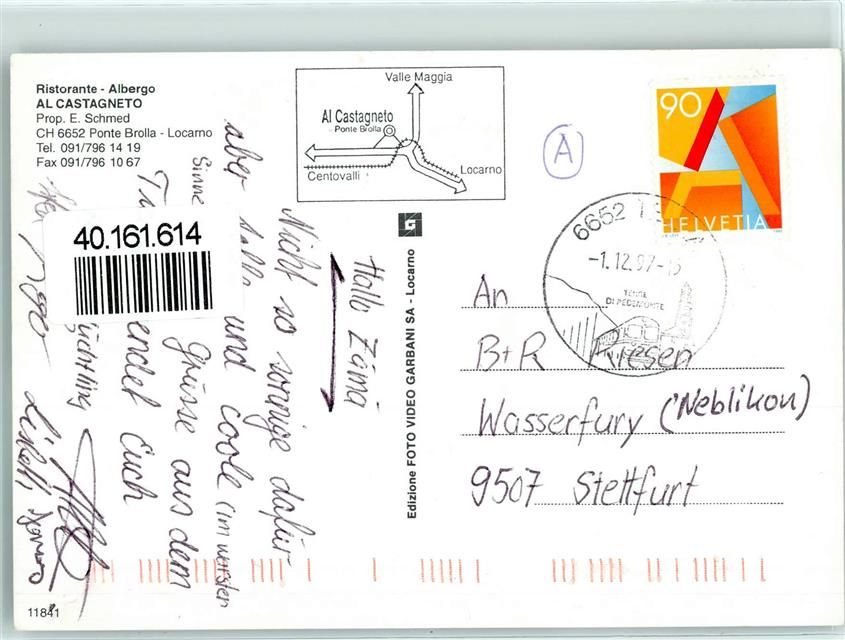 Ristorante - Albergo
AL CASTAGNETO
Prop. E. Schmed
CH 6652 Ponte Brolla - Locarno
Tel. 091/796 14 19
Fax 091/796 10 67
Valle Maggia
Al Castagneto
Ponte Brolla
Centovalli
Locarno
A
90
HELVETIA
6652 T
-1.12.97-15
TERRE
DI PEDEMONTE
40.161.614
Hallo Zäma
Nicht so sonnige dafür
aber tolle und coole (im warsten
Sinne
Grüsse aus dem
endet Euch
G
Edizione FOTO VIDEO GARBANI SA - Locarno
An
B+R Riesen
Wasserfury (Neblikon)
9507 Stettfurt
11841